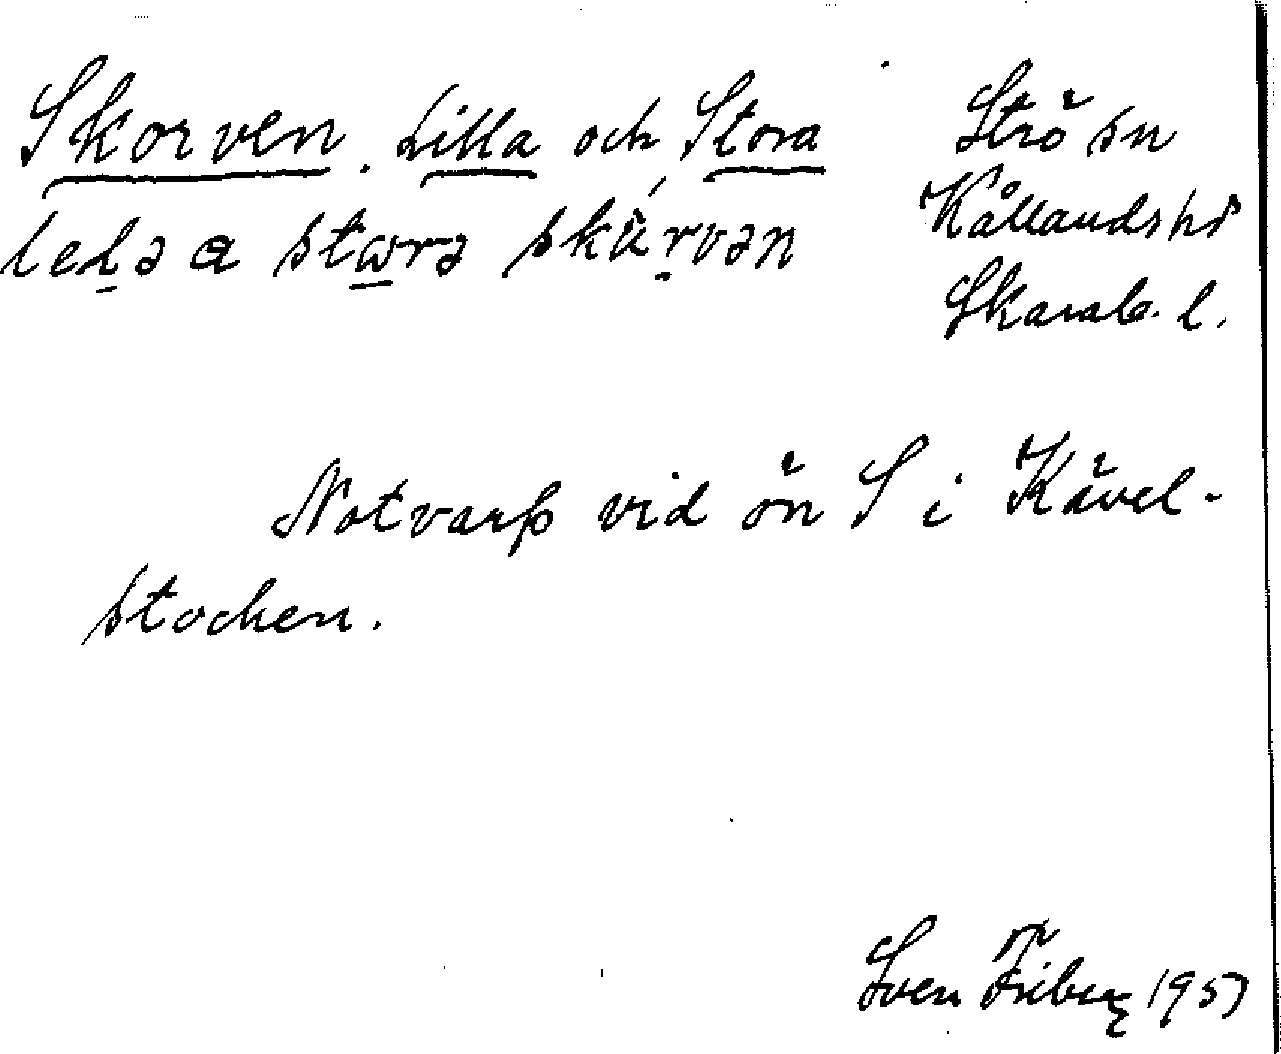 Skorven. Lilla och Stora
leḻə a stɷrə skúrvən
Strö sn
Kållands hd
Skarab. l.
Notvarp vid ön S i Kävel-
stocken.
Sven Friberg 1957